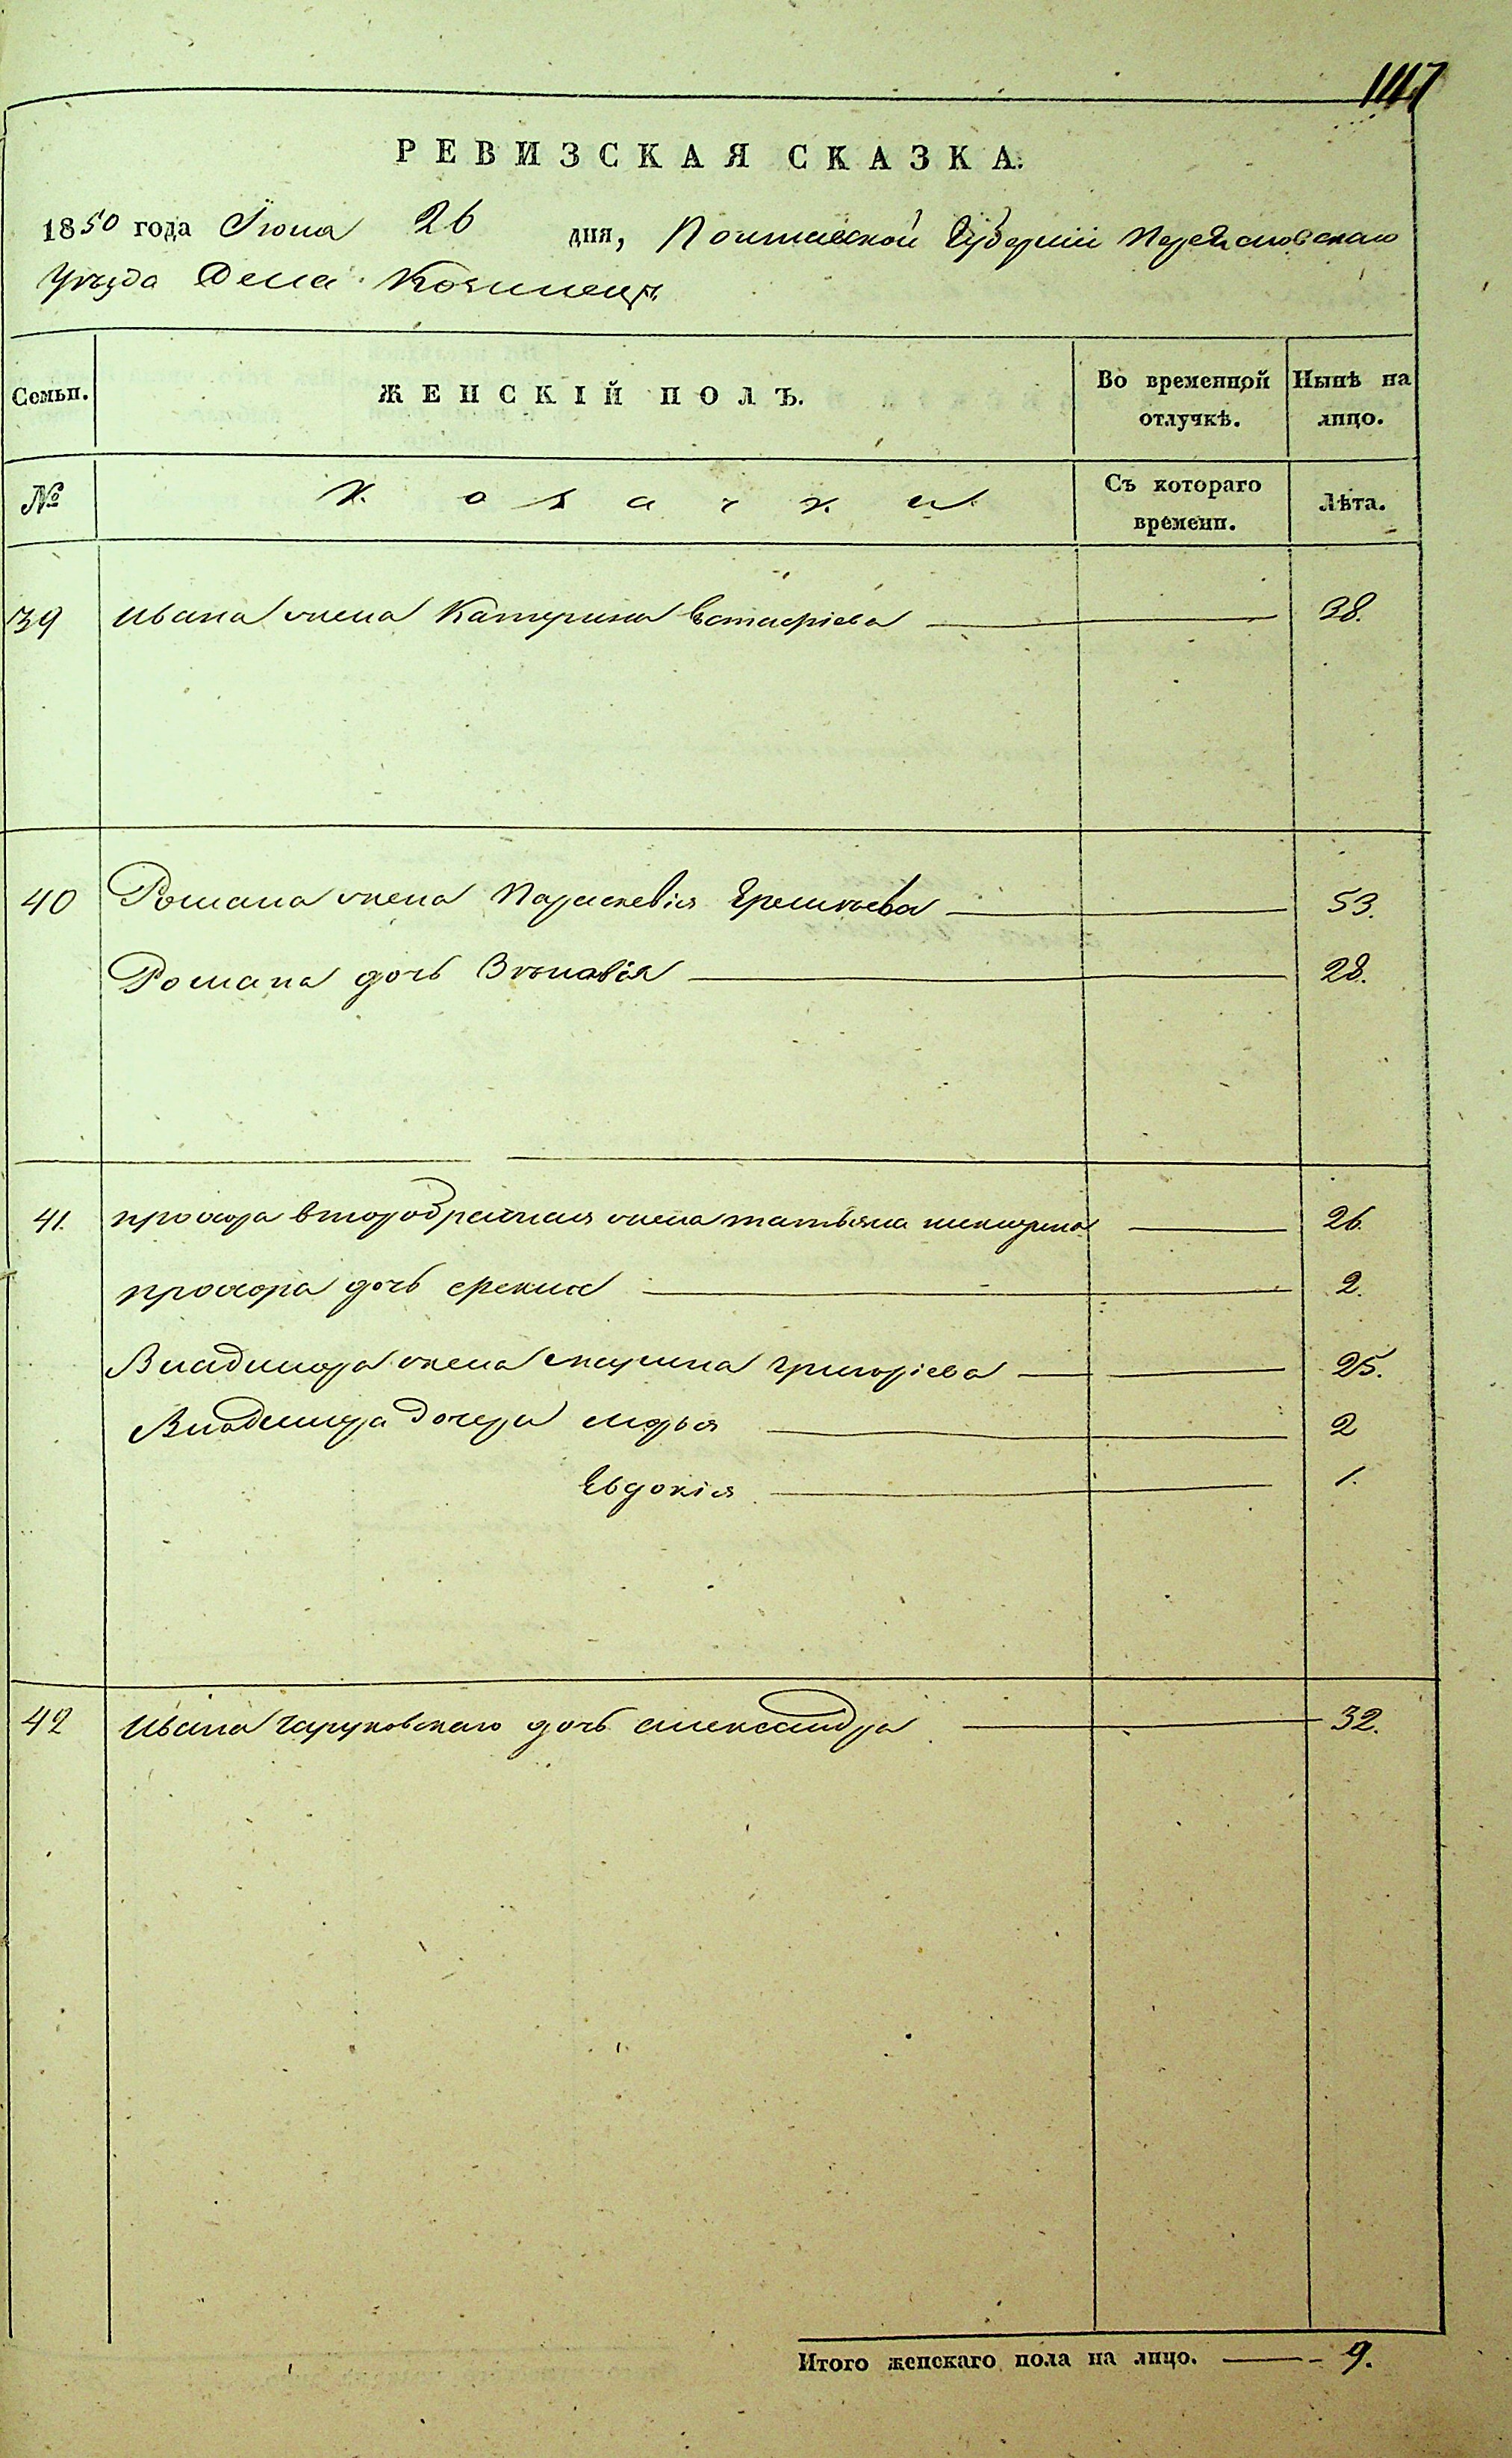 РЕВИЗСКАЯ СКАЗКА.
1850 года Іюня 26 дня, Полтавской Губерніи Переяславскаго
Уѣзда Села
Семьи. ЖЕНСКІЙ ПОЛЪ. Во временной отлучкѣ. Нынѣ на лицо.
№ Козачки Съ котораго времени. Лѣта.
39 Ивана жена Катерина Евстафіева 38.
40 Романа жена Параскевія 53.
Романа дочь Зѣновія 28.
41. прохора второбрачная жена татьяна никифорова 26.
прохора дочь 2.
Владимера жена марина григоріева 25.
Владимера дочери марья 2
Евдокія 1.
42 Ивана дочь александра 32.
Итого женскаго пола на лицо. 9.